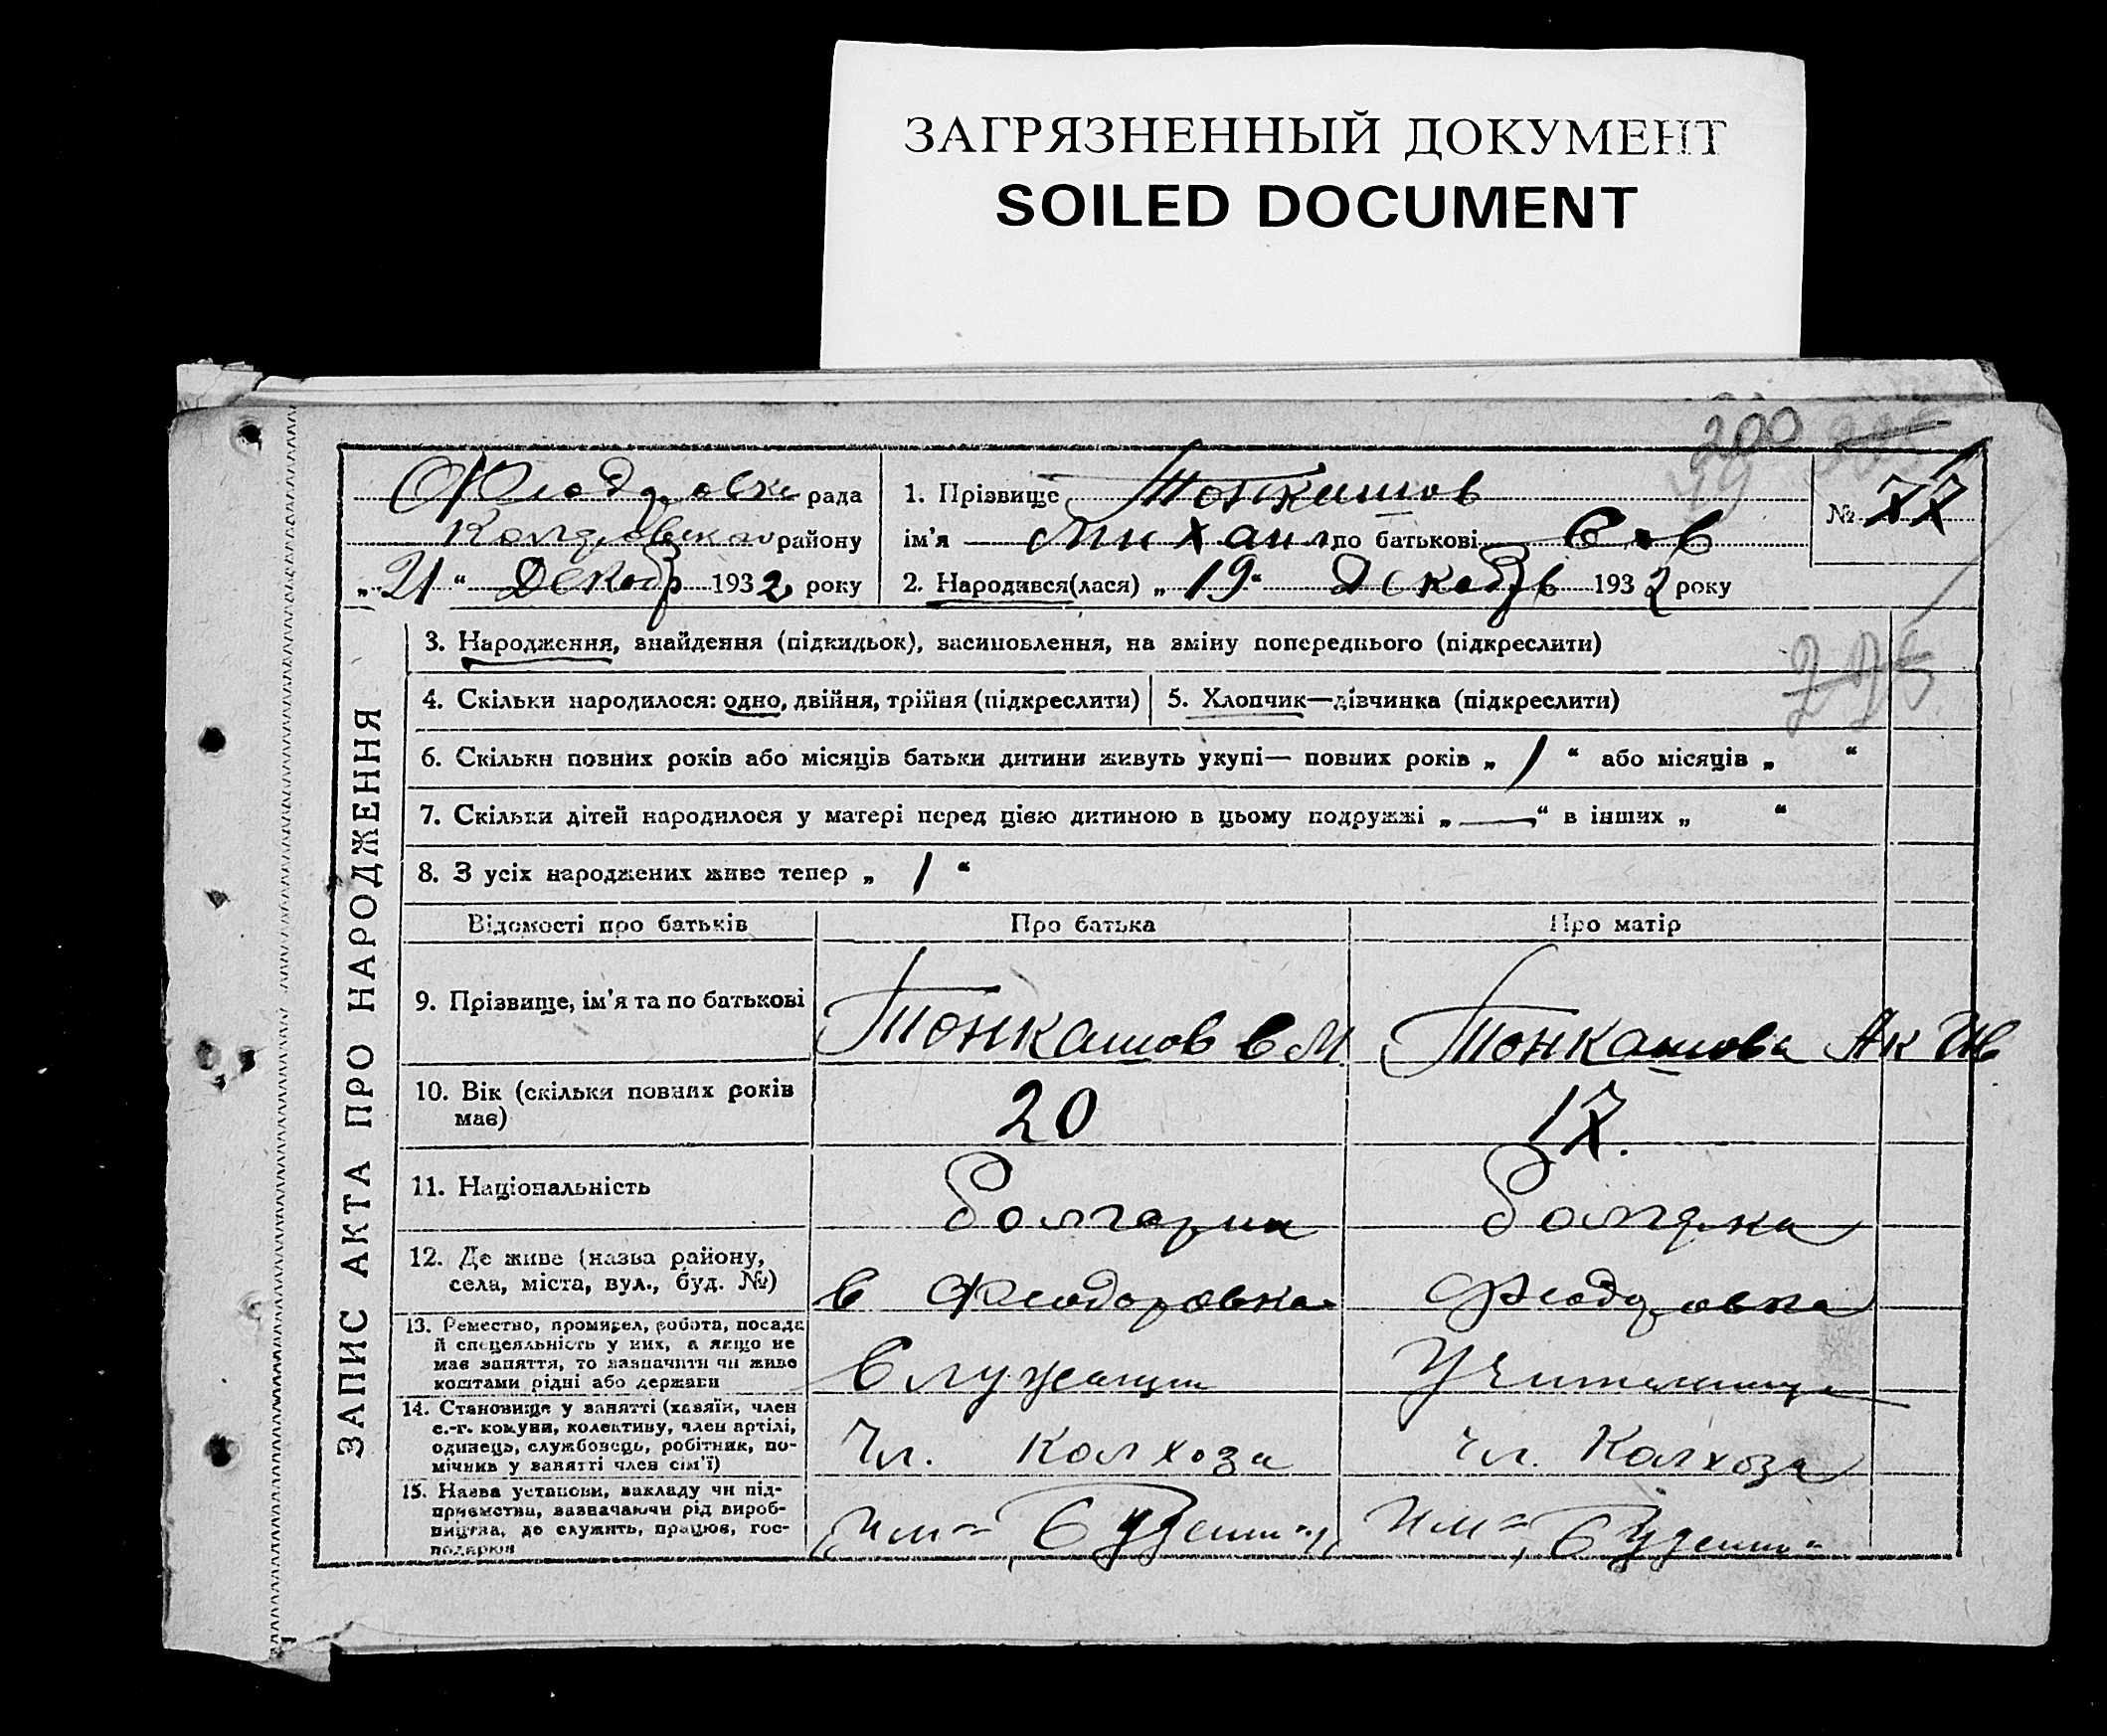 ЗАГРЯЗНЕННЫЙ ДОКУМЕНТ
SOILED DOCUMENT
200
ЗАПИС АКТА ПРО НАРОДЖЕННЯ
рада
району
„21“ Декабр 1932 року
1. Прізвище Тонкашов
ім'я Михаил по батькові
2. Народився(лася) „19“ Декабр 1932 року
№ 77
3. Народження, знайдення (підкидьок), засиновлення, на зміну попереднього (підкреслити)
4. Скільки народилося: одно, двійня, трійня (підкреслити)
5. Хлопчик—дівчинка (підкреслити)
6. Скільки повних років або місяців батьки дитини живуть укупі— повних років „1“ або місяців „ “
7. Скільки дітей народилося у матері перед цією дитиною в цьому подружжі „—“ в інших „ “
8. З усіх народжених живе тепер „1“
Відомості про батьків
Про батька
Про матір
9. Прізвище, ім'я та по батькові
Тонкашов В М
Тонкашова
10. Вік (скільки повних років
має)
20
17.
11. Національність
Болгарин
Болгарка
12. Де живе (назва району,
села, міста, вул., буд. №)
в Феодоровка
Феодоровка
13. Ремество, промисел, робота, посада
й спецеяльність у них, а якщо не
має заняття, то зазначити чи живе
коштами рідні або держави
Служащи
Учителница
14. Становище у занятті (хазяїн, член
с.-г. комуни, колективу, член артілі,
одинець, службовець, робітник, по-
мічник у занятті член сім'ї)
Чл. Колхоза
чл. Колхоза
15. Назва установи, закладу чи під-
приємства, зазначаючи рід вироб-
ництва, де служить, працює, гос-
подарює
Им=
Им=